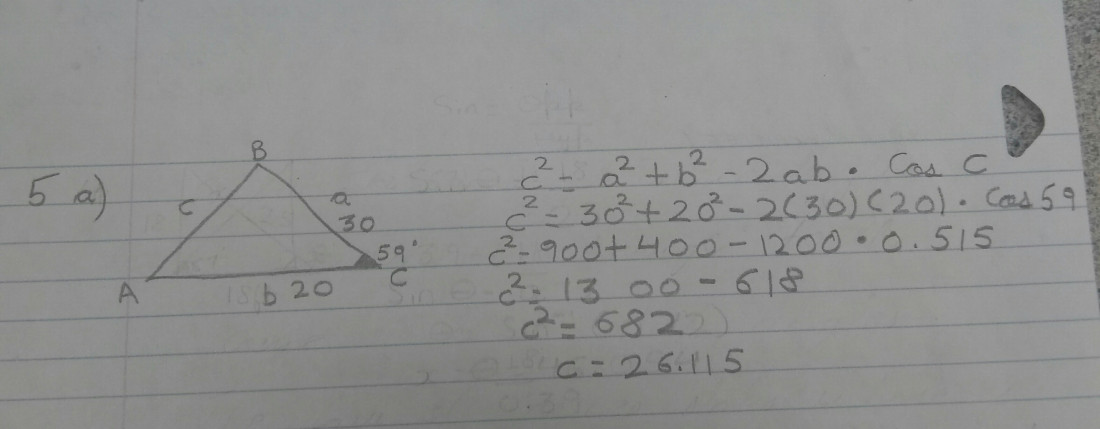 5 a)
B
c
a
30
59°
A
b 20
C
c² = a² + b² - 2ab · Cos C
c² = 30² + 20² - 2(30)(20) · Cos 59
c² = 900 + 400 - 1200 · 0.515
c² = 1300 - 618
c² = 682
c = 26.115